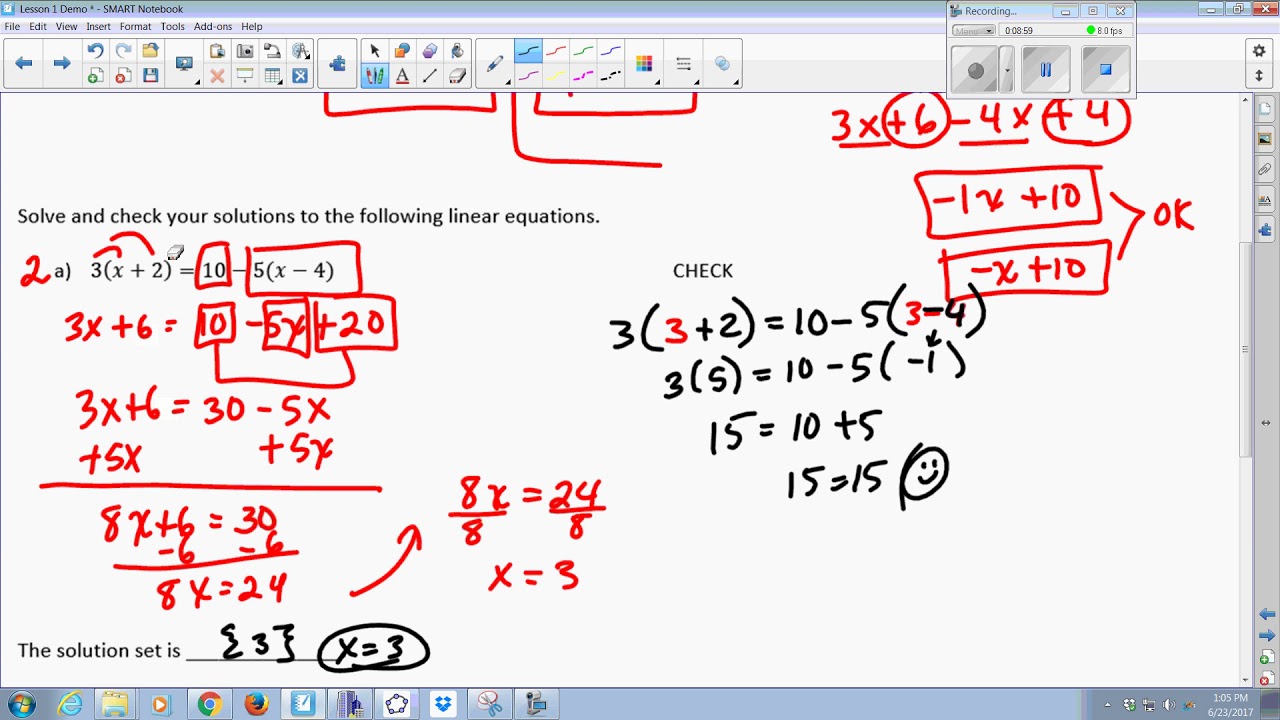 Lesson 1 Demo * - SMART Notebook
File Edit View Insert Format Tools Add-ons Help
Recording...
Menu 0:08:59 8.0 fps
3x + 6 - 4x + 4
-1x + 10
OK
-x + 10
Solve and check your solutions to the following linear equations.
2 a) 3(x + 2) = 10 - 5(x - 4)
3x + 6 = 10 - 5x + 20
3x + 6 = 30 - 5x
+5x +5x
8x + 6 = 30
-6 -6
8x = 24
8x = 24
8 8
x = 3
CHECK
3(3 + 2) = 10 - 5(3 - 4)
3(5) = 10 - 5(-1)
15 = 10 + 5
15 = 15
The solution set is {3} x = 3
1:05 PM
6/23/2017